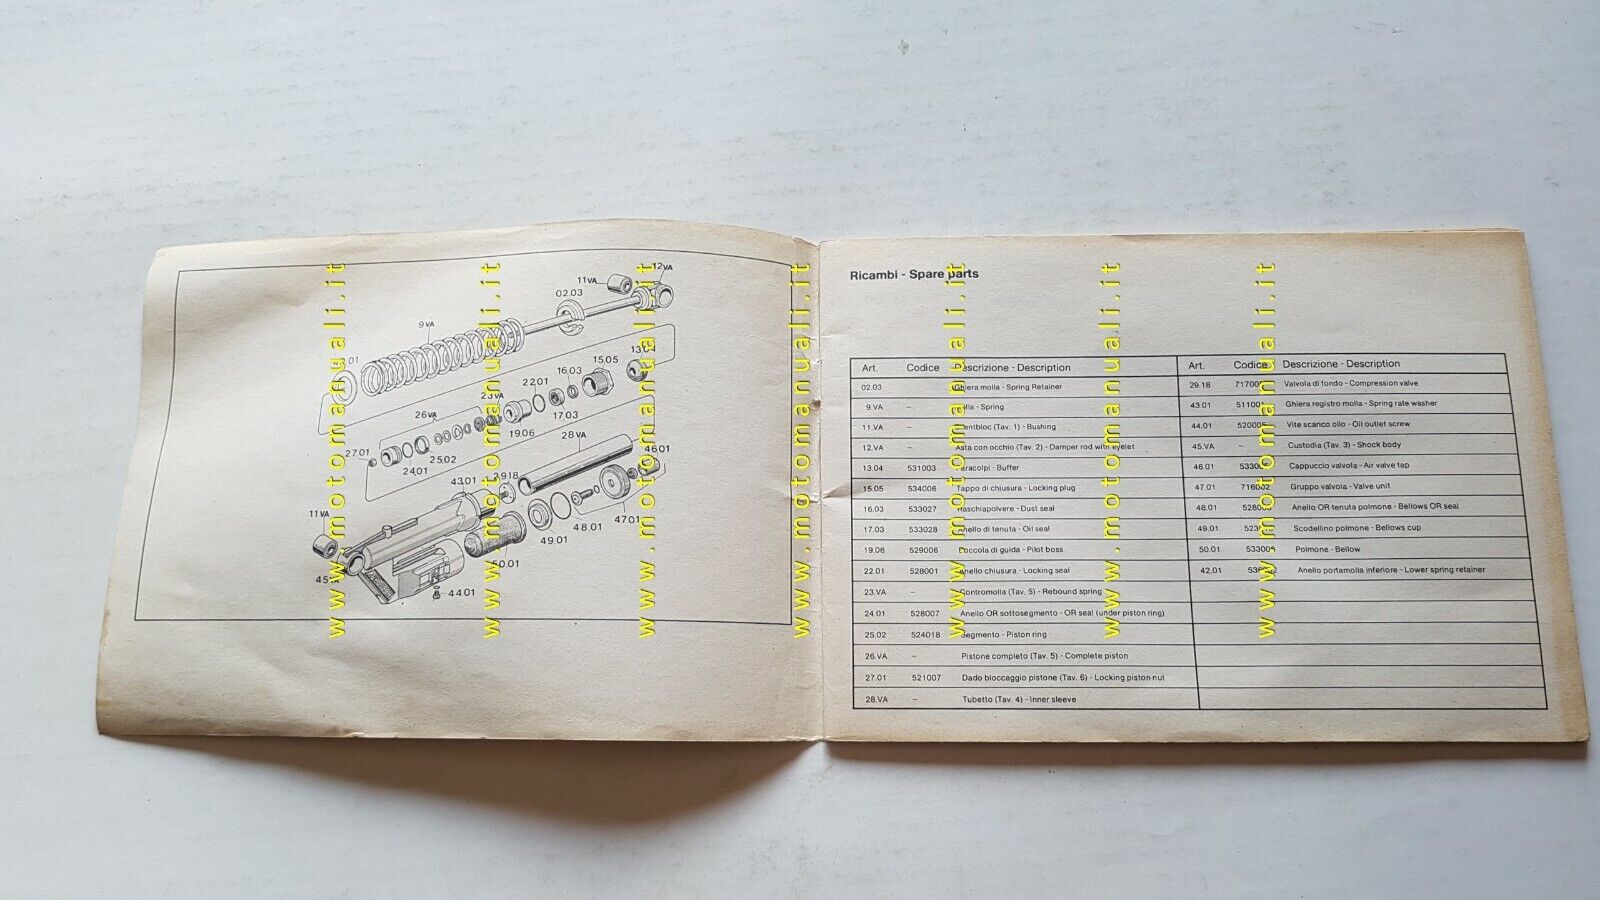 12.VA
11.VA
02.03
9.VA
13.04
15.05
16.03
22.01
23.VA
26.VA
17.03
19.06
28.VA
27.01
25.02
24.01
46.01
43.01
29.18
11.VA
47.01
48.01
49.01
50.01
44.01
www.motomanuali.it
www.motomanuali.it
www.motomanuali.it
www.motomanuali.it
www.motomanuali.it
www.motomanuali.it
www.motomanuali.it
Ricambi - Spare parts
Art. Codice Descrizione - Description
02.03 Ghiera molla - Spring Retainer
9.VA – - Spring
11.VA – (Tav. 1) - Bushing
12.VA – Asta con occhio (Tav. 2) - Damper rod with eyelet
13.04 531003 Paracolpi - Buffer
15.05 534006 Tappo di chiusura - Locking plug
16.03 533027 Raschiapolvere - Dust seal
17.03 533028 Anello di tenuta - Oil seal
19.06 529006 Boccola di guida - Pilot boss
22.01 528001 Anello chiusura - Locking seal
23.VA – Contromolla (Tav. 5) - Rebound spring
24.01 528007 Anello OR sottosegmento - OR seal (under piston ring)
25.02 524018 Segmento - Piston ring
26.VA – Pistone completo (Tav. 5) - Complete piston
27.01 521007 Dado bloccaggio pistone (Tav. 6) - Locking piston nut
28.VA – Tubetto (Tav. 4) - Inner sleeve
Art. Codice Descrizione - Description
29.18 Valvola di fondo - Compression valve
43.01 Ghiera registro molla - Spring rate washer
44.01 Vite scarico olio - Oil outlet screw
45.VA – Custodia (Tav. 3) - Shock body
46.01 Cappuccio valvola - Air valve tap
47.01 716002 Gruppo valvola - Valve unit
48.01 Anello OR tenuta polmone - Bellows OR seal
49.01 Scodellino polmone - Bellows cup
50.01 533005 Polmone - Bellow
42.01 Anello portamolla inferiore - Lower spring retainer